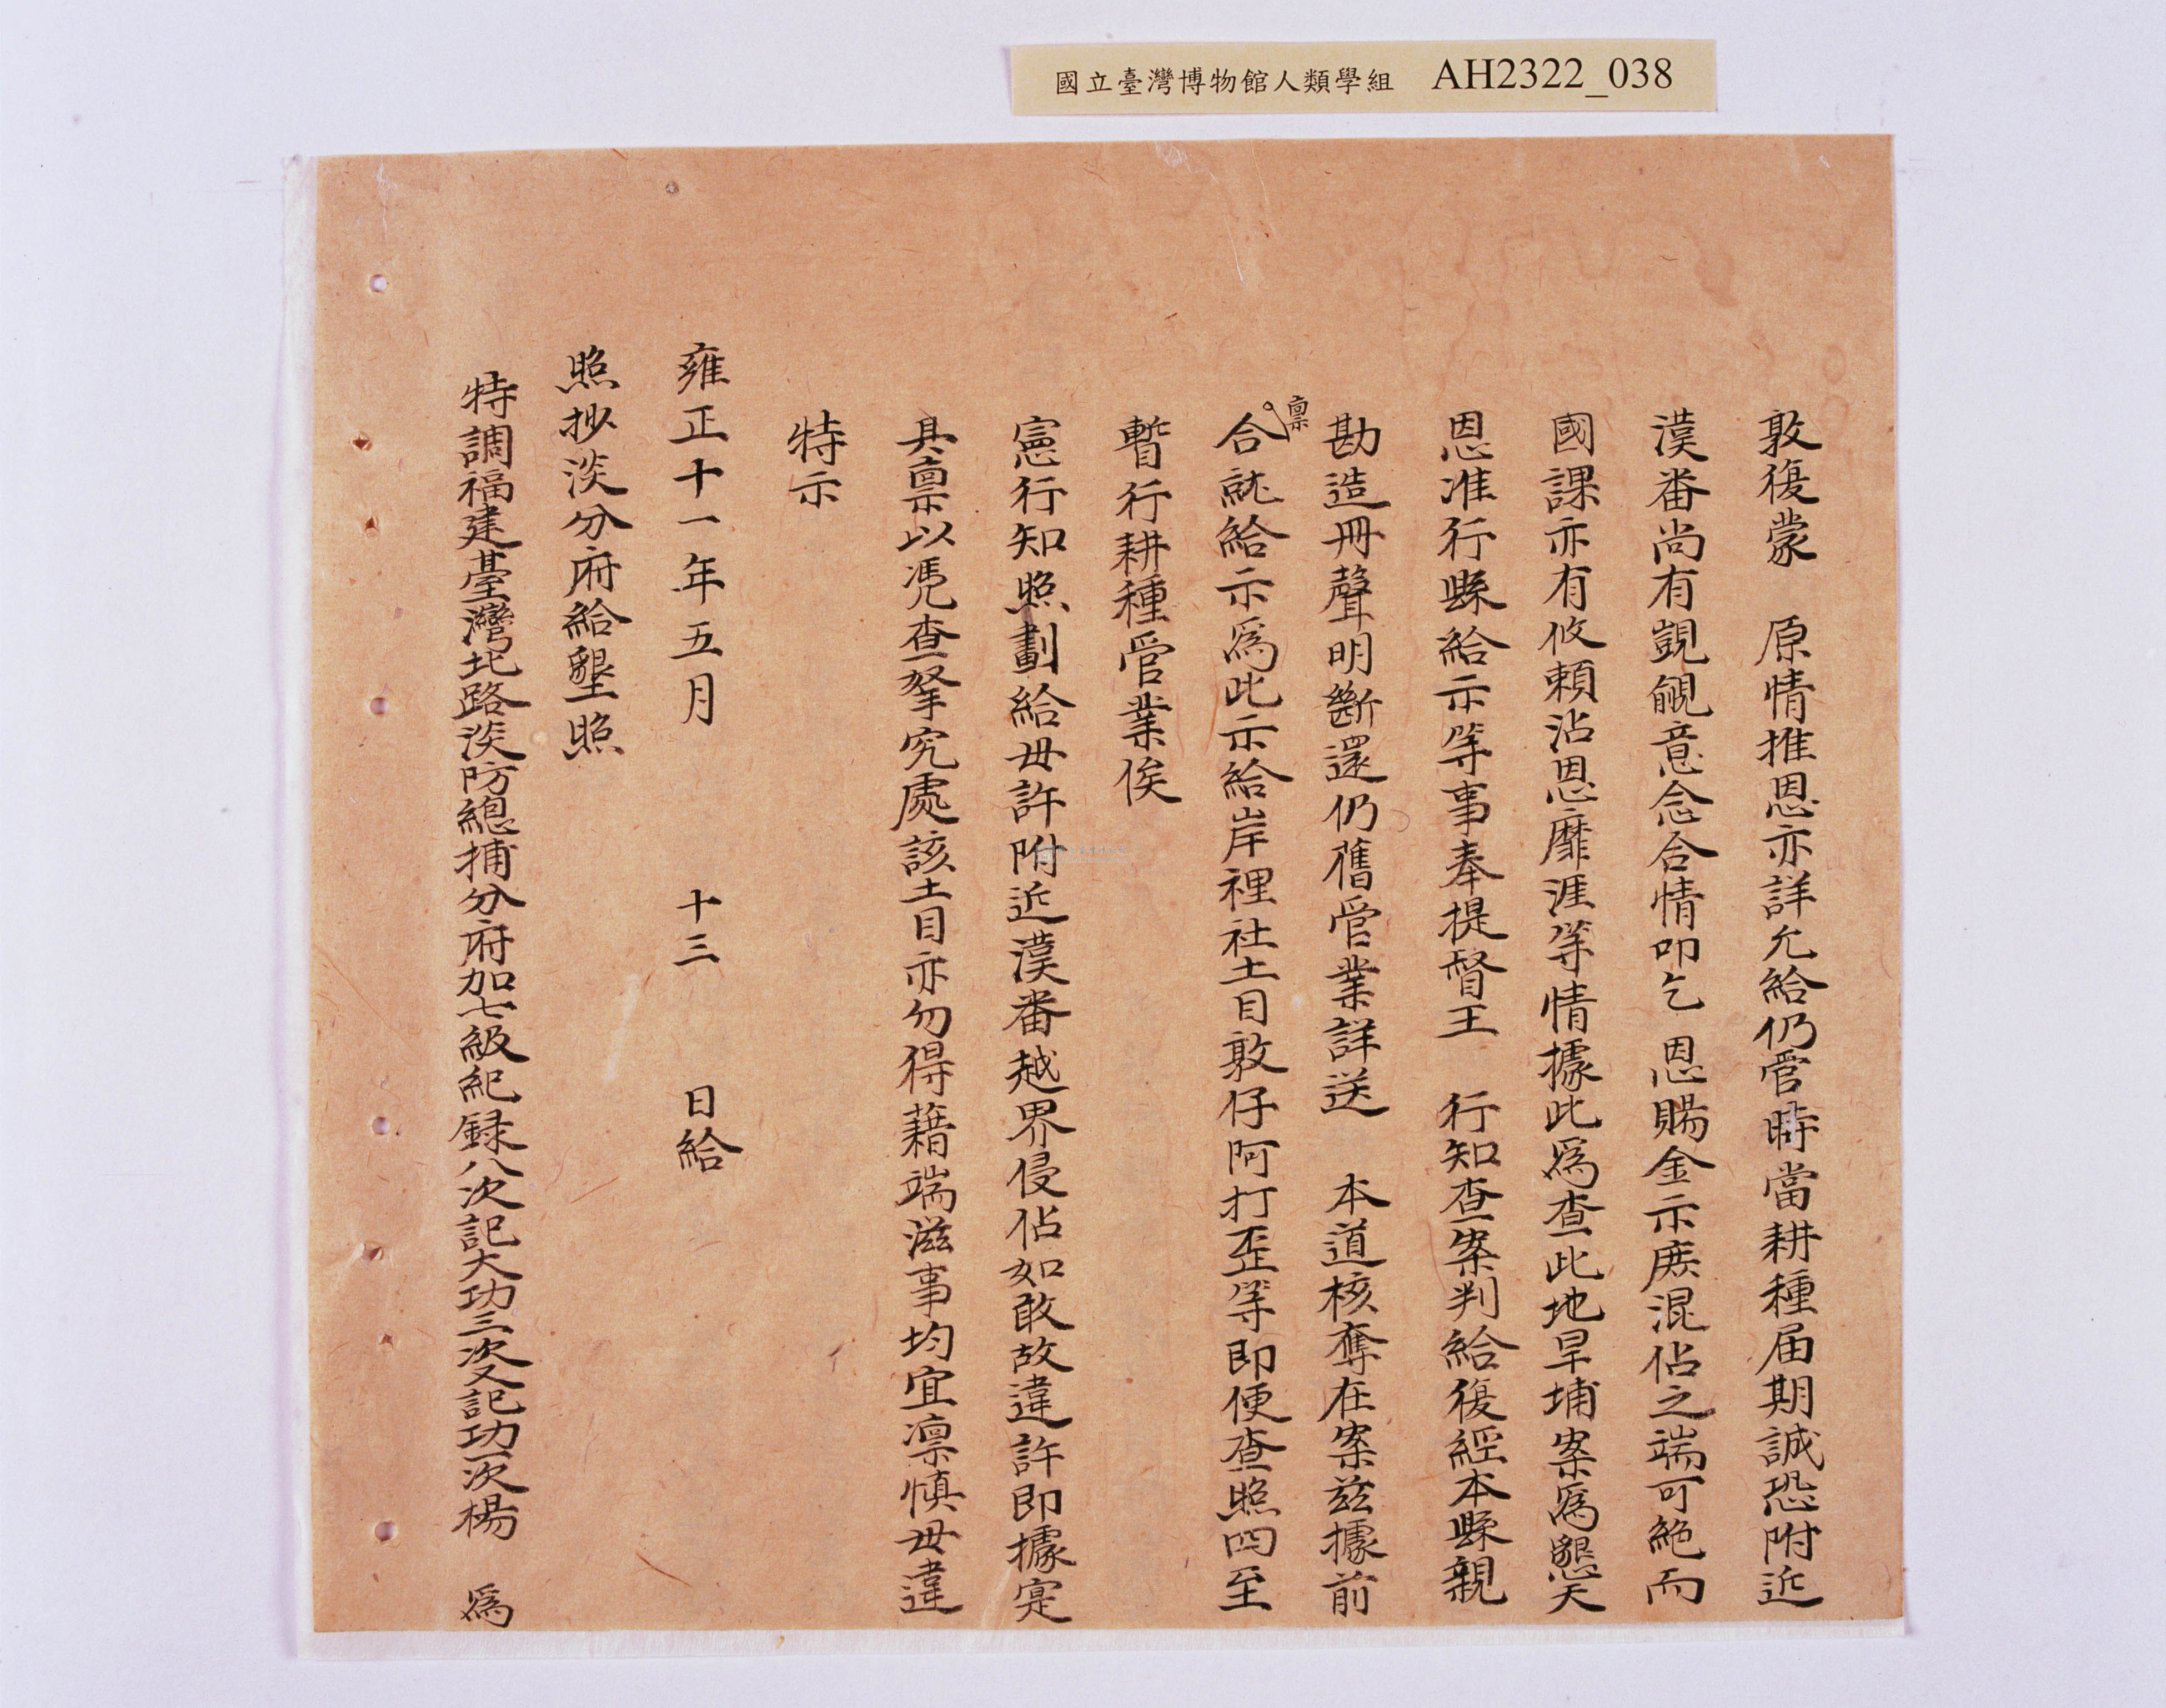 國立臺灣博物館人類學組 AH2322_038
敦復蒙 原情推恩亦詳允給仍管時當耕種届期誠恐附近
漢番尚有覬覦意念合情叩乞 恩賜金示庶混佔之端可絶而
國課亦有攸賴沾恩靡涯等情據此爲查此地旱埔案爲懇天
恩准行縣給示等事奉提督王 行知查案判給復經本縣親
勘造冊聲明斷還仍舊管業詳送 本道核奪在案兹據前
稟
合就給示爲此示給岸裡社土目敦仔阿打歪等即便查照四至
暫行耕種管業俟
憲行知照劃給毋許附近漢番越界侵佔如敢故違許即據寔
具稟以凴查拏究處該土目亦勿得藉端滋事均宜凛慎毋違
特示
雍正十一年五月 十三 日給
照抄淡分府給墾照
特調福建臺灣北路淡防總捕分府加七級紀録八次記大功三次又記功一次楊 爲